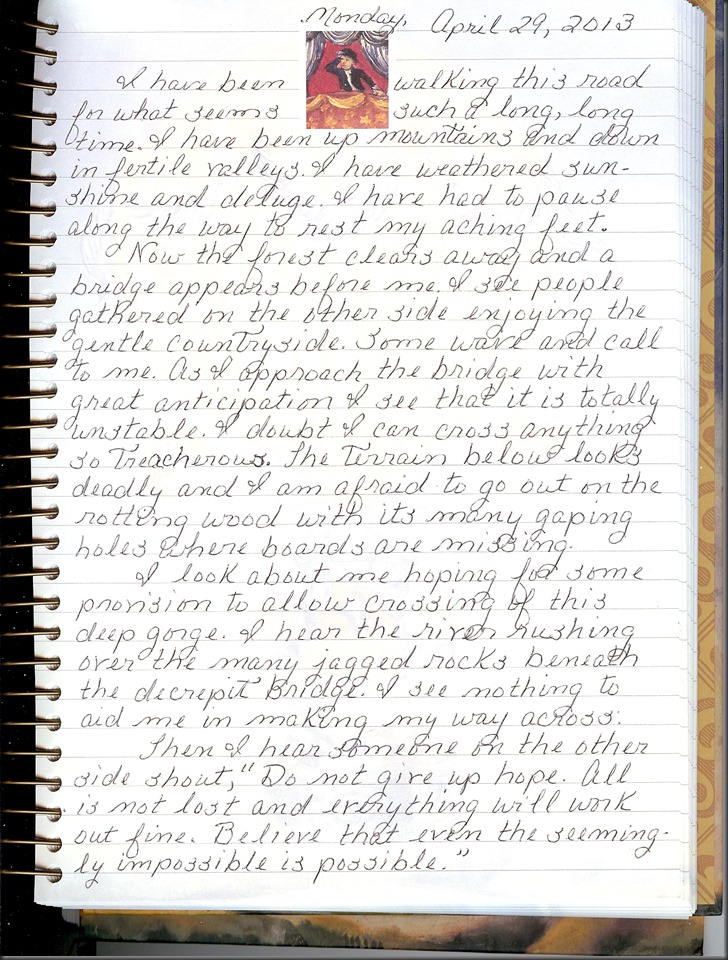 Monday, April 29, 2013
I have been walking this road
for what seems such a long, long
time. I have been up mountains and down
in fertile valleys. I have weathered sun-
shine and deluge. I have had to pause
along the way to rest my aching feet.
Now the forest clears away and a
bridge appears before me. I see people
gathered on the other side enjoying the
gentle countryside. Some wave and call
to me. As I approach the bridge with
great anticipation I see that it is totally
unstable. I doubt I can cross anything
so treacherous. The terrain below looks
deadly and I am afraid to go out on the
rotting wood with its many gaping
holes where boards are missing.
I look about me hoping for some
provision to allow crossing of this
deep gorge. I hear the river rushing
over the many jagged rocks beneath
the decrepit bridge. I see nothing to
aid me in making my way across.
Then I hear someone on the other
side shout, "Do not give up hope. All
is not lost and everything will work
out fine. Believe that even the seeming-
ly impossible is possible."